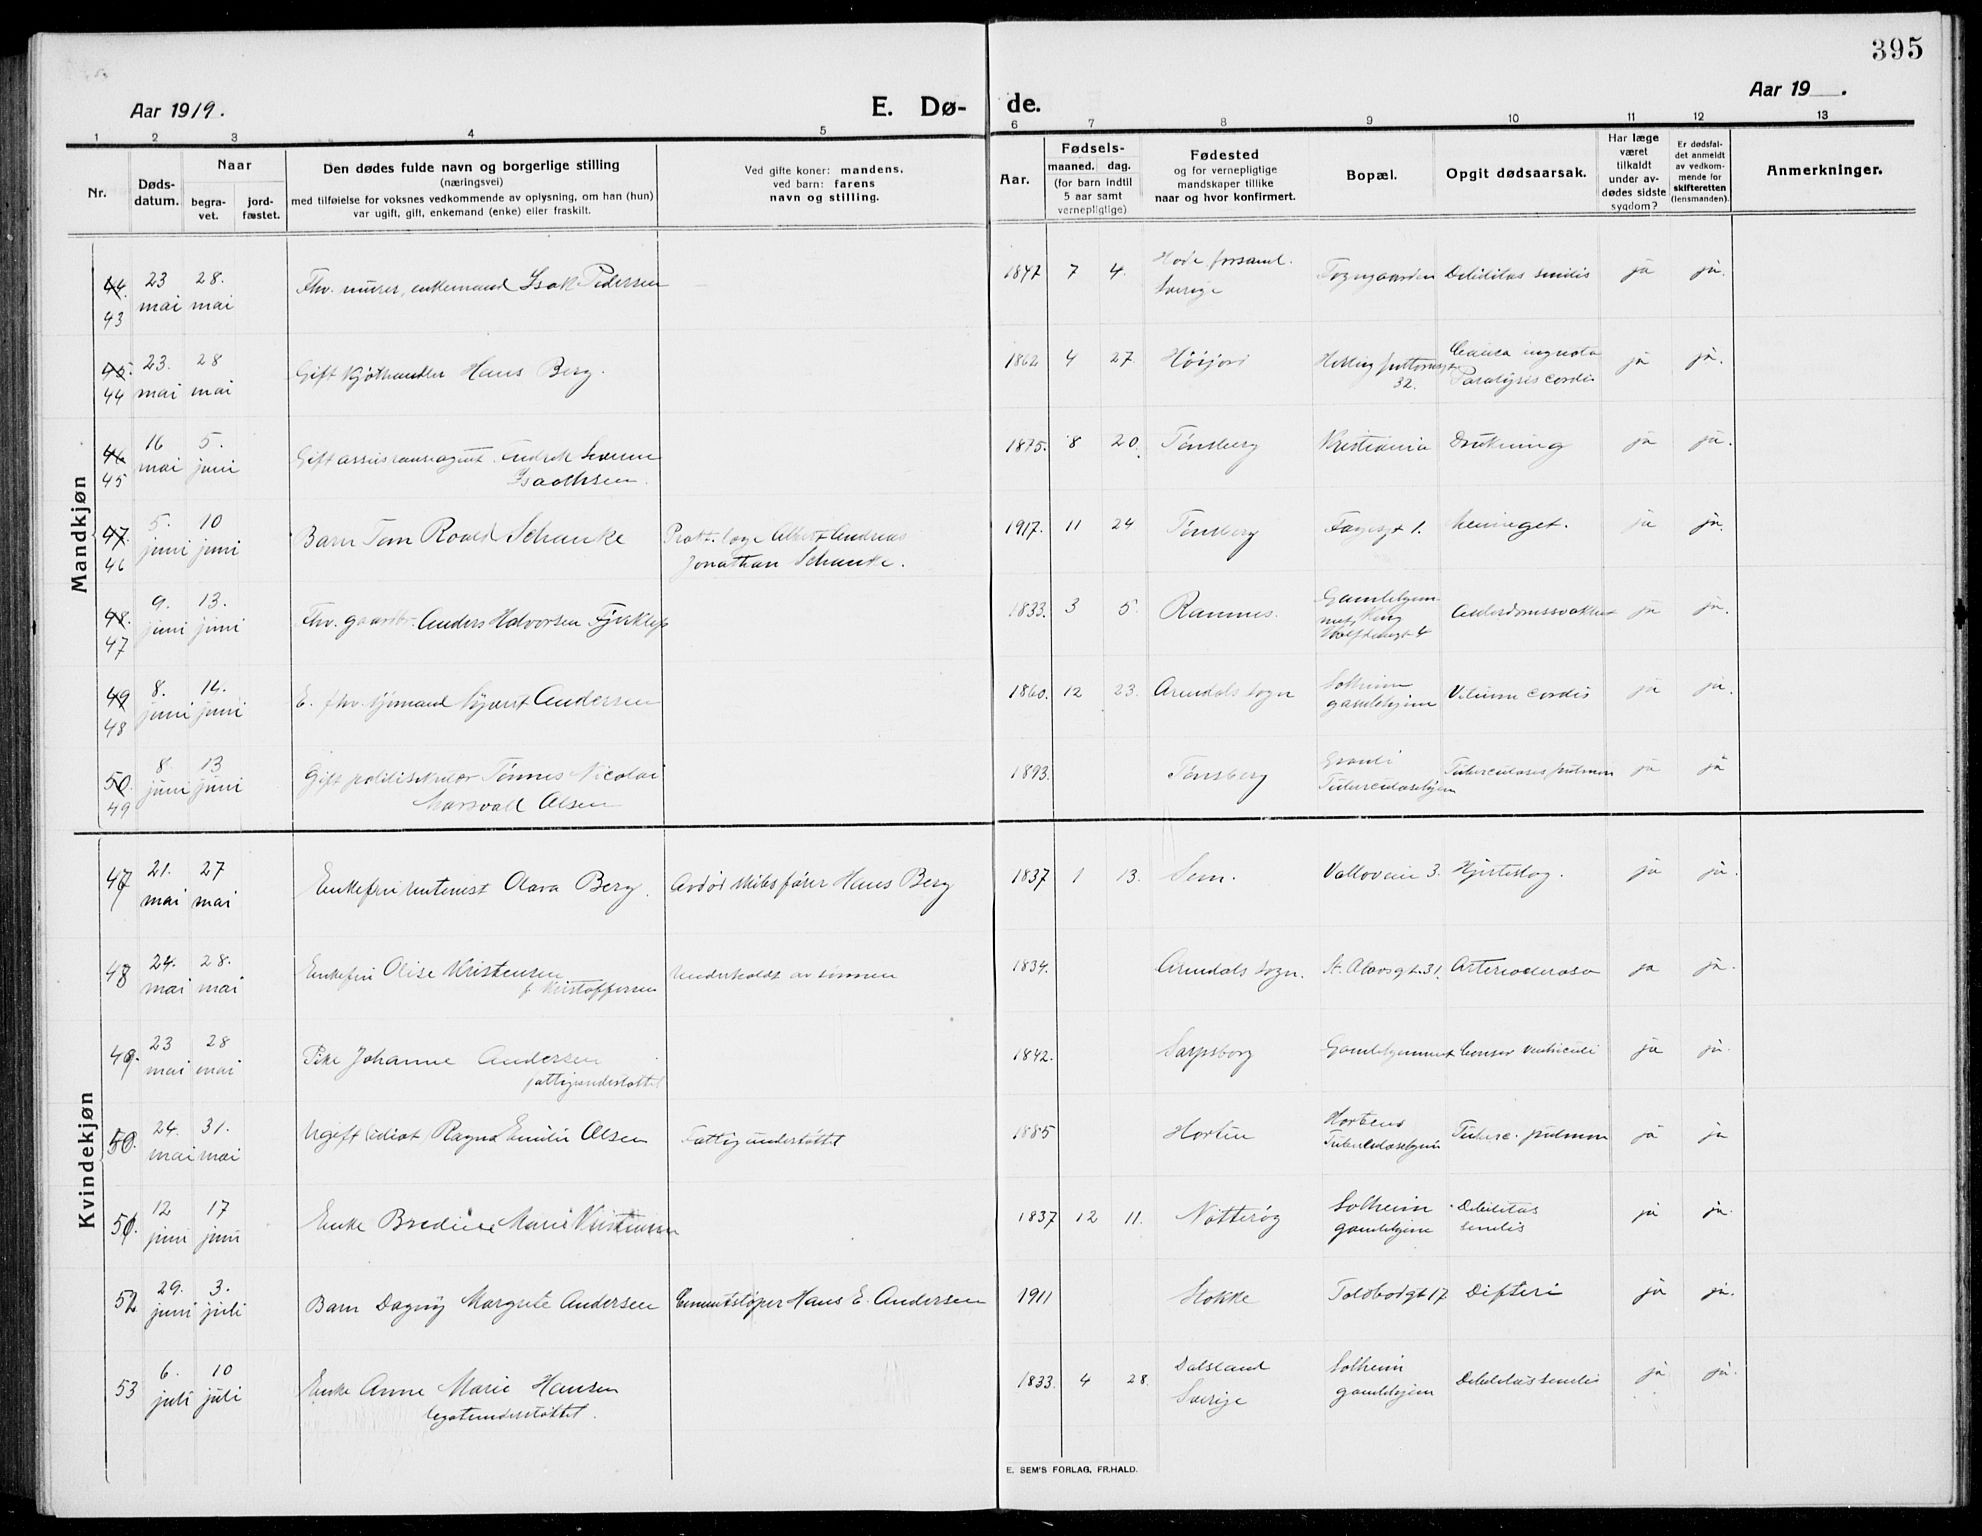 395
Aar 1919.
E. Dø- de.
Aar 19 .
1 2 3 4 5 6 7 8 9 10 11 12 13
Nr.
Døds-
datum.
Naar
begra-
vet.
jord-
fæstet.
Den dødes fulde navn og borgerlige stilling
(næringsvei)
med tilføielse for voksnes vedkommende av oplysning, om han (hun)
var ugift, gift, enkemand (enke) eller fraskilt.
Ved gifte koner: mandens.
ved barn: farens
navn og stilling.
Aar.
Fødsels-
maaned. dag.
(for barn indtil
5 aar samt
vernepligtige)
Fødested
og for vernepligtige
mandskaper tillike
naar og hvor konfirmert.
Bopæl.
Opgit dødsaarsak.
Har læge
været
tilkaldt
under av-
dødes sidste
sygdom?
Er dødsfal-
det anmeldt
av vedkom-
mende for
skifteretten
(lensmanden).
Anmerkninger.
Mandkjøn
44. 43 23 mai 28. mai Fhv. murer, enkemand Isak Pedersen 1847 7 4. forsaml. Sverige Debilitas senilis ja ja.
45. 44 23. mai 28 mai Gift kjøthandler Hans Berg. 1862 4 27. Høijord 32. Causa ignota Paralysis cordis ja ja.
46 45 16 mai 5. juni Gift assuranseagent Isachsen. 1875. 8 20. Tønsberg Kristiania Drukning ja ja.
47. 46 5. juni 10 juni Barn Tom Roald Schanke Prakt. læge Albert Andreas Jonathan Schanke. 1917. 11 24 Tønsberg 1. meninget. ja ja.
48. 47 9. juni 13. juni Fhv. gaardbr. Anders Halvorsen 1833. 3 5. Ramnes. 4 Alderdomssvakhet ja ja.
49 48 8. juni 14. juni E. fhv. sjømand Andersen 1860. 12 23. Arendals sogn Solheim gamlehjem Vitium cordis ja ja.
50. 49 8. juni 13 juni Gift Tønnes Nicolai Olsen 1893. Tønsberg Tuberculosehjem Tuberculosis pulmon ja ja
Kvindekjøn
47 21. mai 27 mai Enkefru rentenist Olava Berg. Avdød skibsfører Hans Berg 1837 1 13. Sem. Valløveien 3. Hjerteslag. ja ja.
48 24. mai 28. mai Enkefru Olise Kristensen f. Kristoffersen Underholdt av sønnen 1834. Arendals sogn. St. Olavsgt. 31. ja ja.
49. 23 mai 28 mai Pike Johanne Andersen fattigunderstøttet 1842. Sarpsborg Gamlehjemmet Cancer ventriculi ja ja.
50. 24. mai 31. mai Ugift idiot, Ragna Emilie Olsen Fattigunderstøttet 1885 Horten Hortens Tuberculosehjem Tuberc. pulmon ja ja
51. 12 juni 17 juni Enke Bredine Marie Kristiansen 1837 12 11. Nøtterøy Solheim gamlehjem Debilitas senilis ja ja.
52 29. juni 3. juli Barn Dagny Margrete Andersen Cementstøper Hans E. Andersen 1911 Stokke Toldbodgt 17 Difteri ja ja.
53 6. juli 10 juli Enke Anne Marie Hansen legatunderstøttet. 1833. 4 28. Dalsland Sverige Solheim gamlehjem Debilitas senilis ja ja.
E. SEM'S FORLAG, FR.HALD.